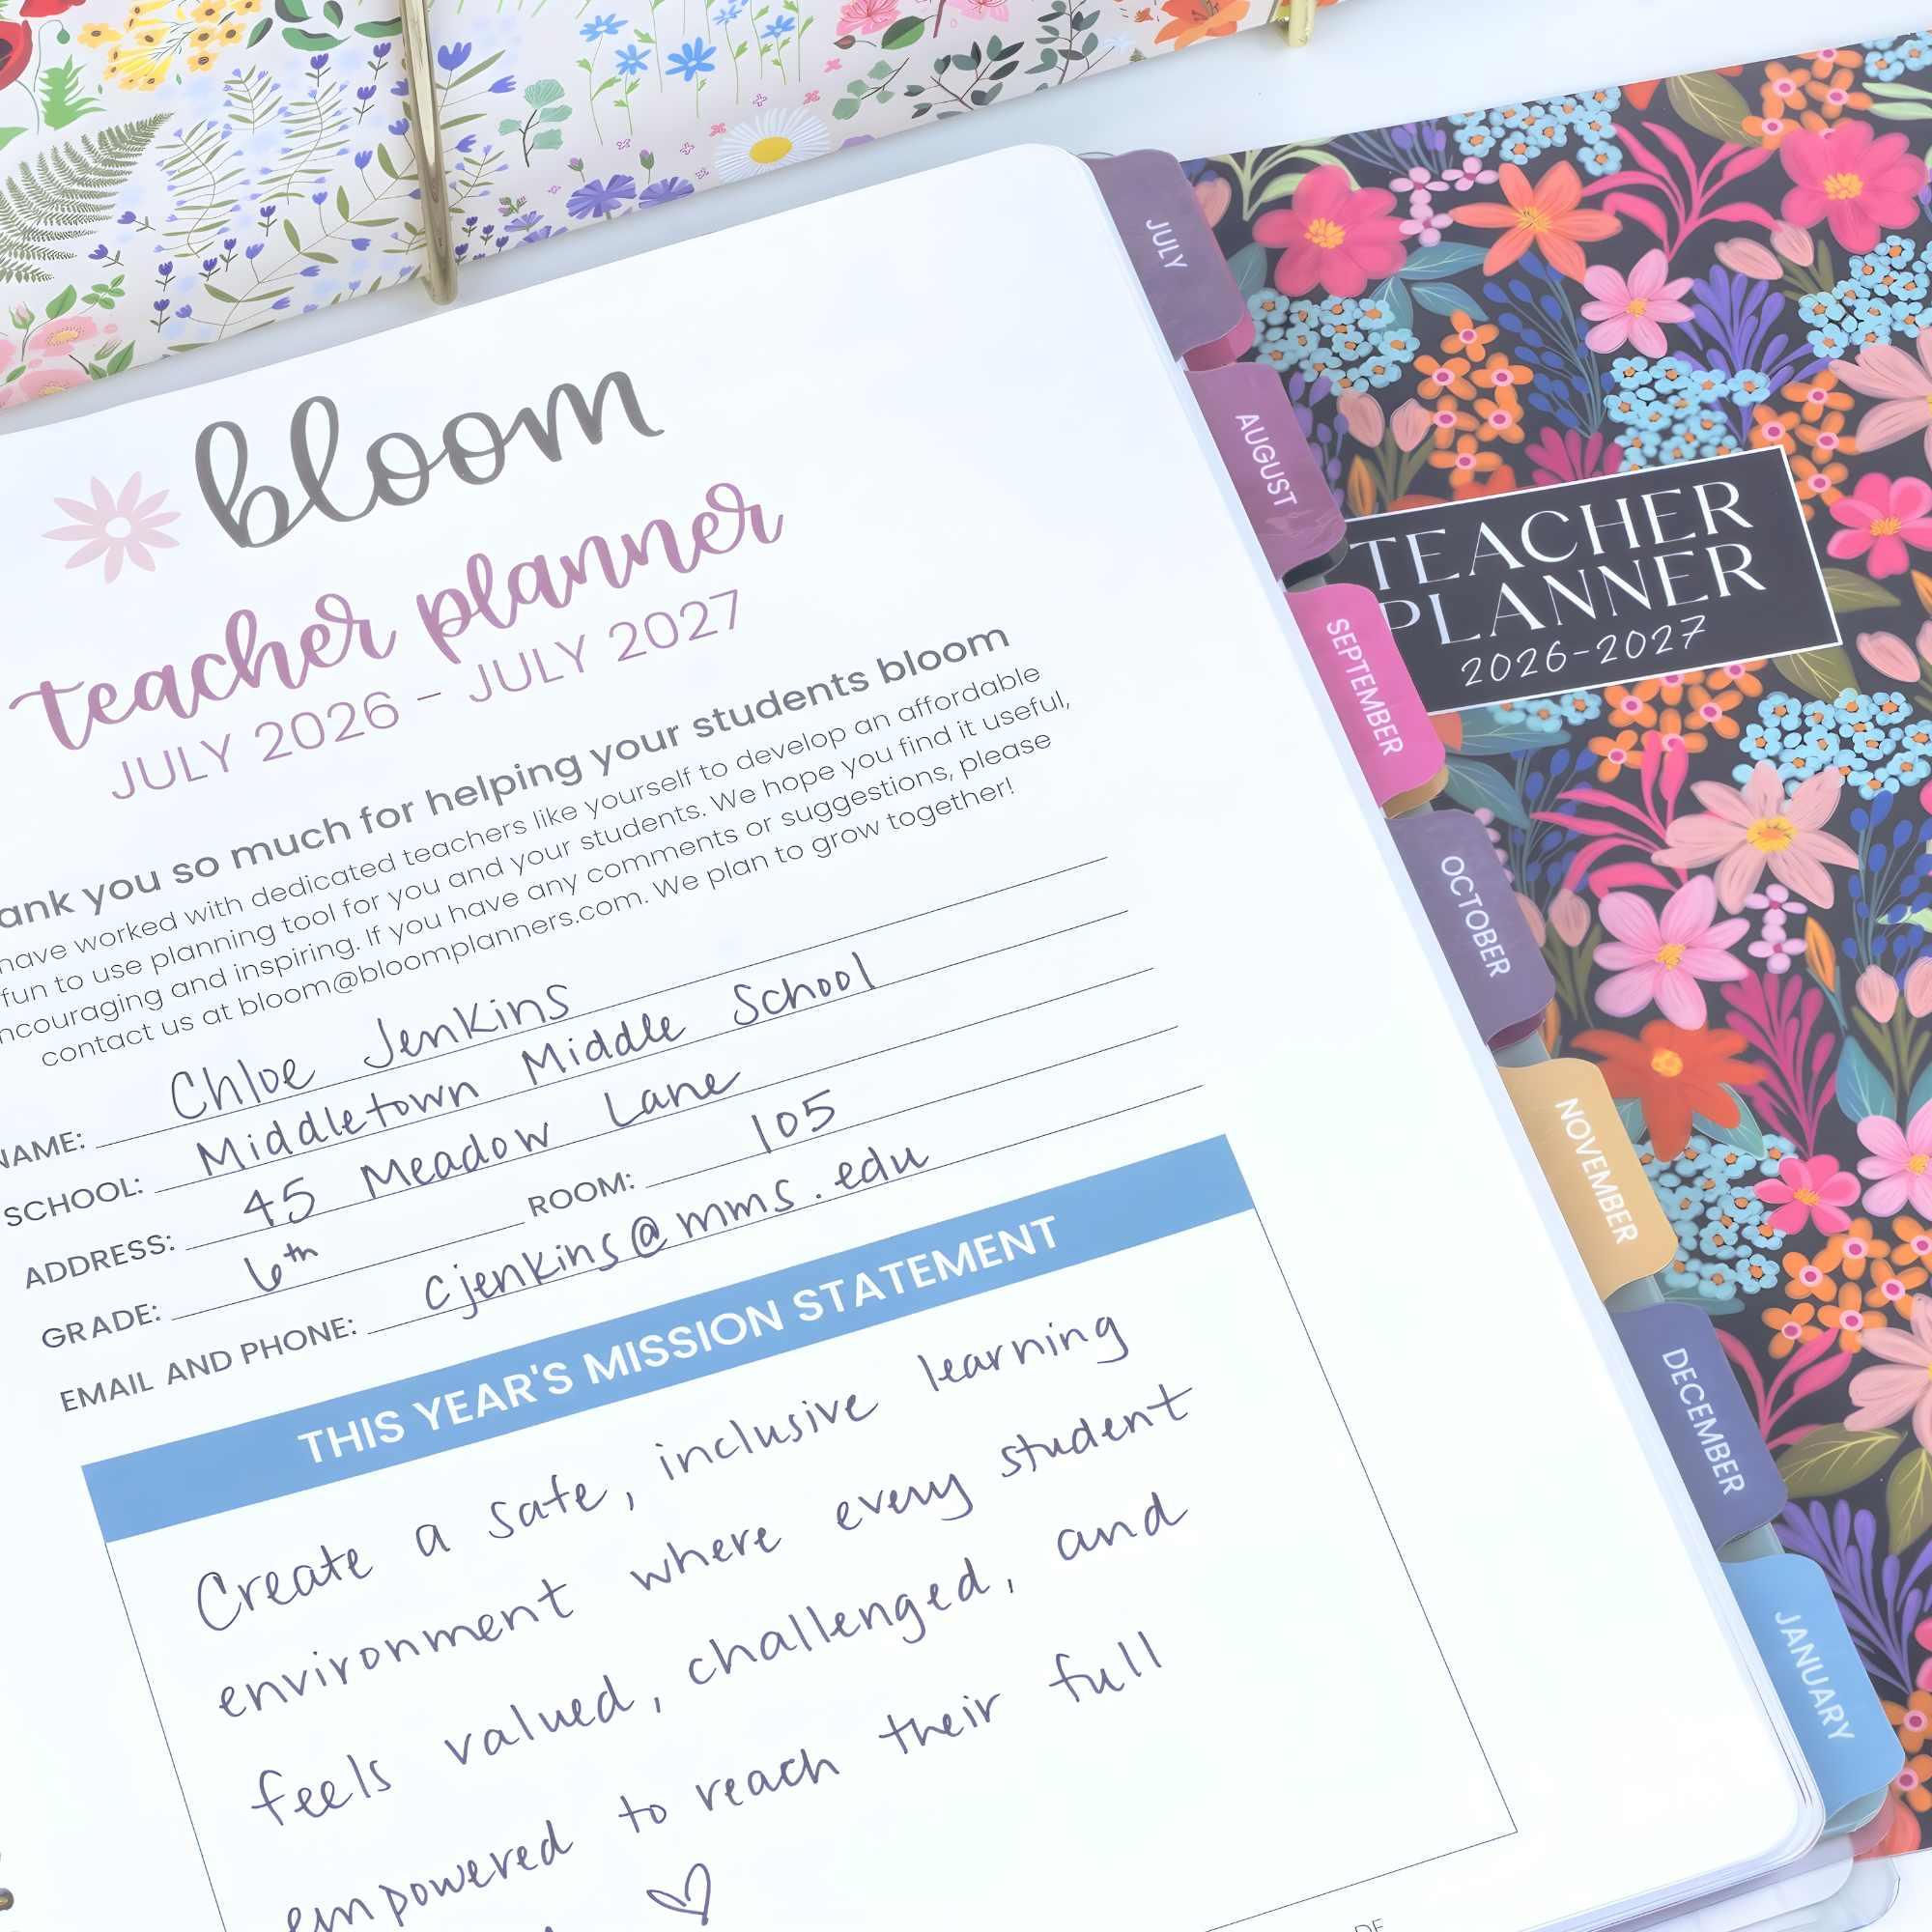 bloom
teacher planner
JULY 2026 - JULY 2027
ank you so much for helping your students bloom
have worked with dedicated teachers like yourself to develop an affordable
fun to use planning tool for you and your students. We hope you find it useful,
ncouraging and inspiring. If you have any comments or suggestions, please
contact us at bloom@bloomplanners.com. We plan to grow together!
NAME: Chloe Jenkins
SCHOOL: Middletown Middle School
ADDRESS: 45 Meadow Lane
GRADE: 6th ROOM: 105
EMAIL AND PHONE: cjenkins@mms.edu
THIS YEAR'S MISSION STATEMENT
Create a safe, inclusive learning
environment where every student
feels valued, challenged, and
empowered to reach their full
JULY
AUGUST
SEPTEMBER
OCTOBER
NOVEMBER
DECEMBER
JANUARY
TEACHER
PLANNER
2026-2027